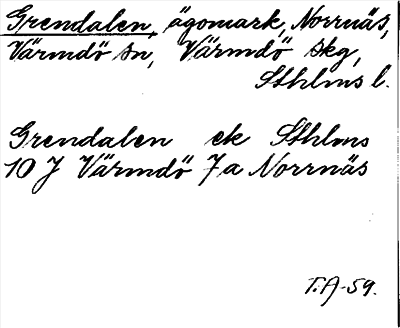 Grendalen, ägomark, Norrnäs,
Värmdö sn, Värmdö skg,
Sthlms l.
Grendalen ek Sthlms
10 J Värmdö 7a Norrnäs
T.A-59.